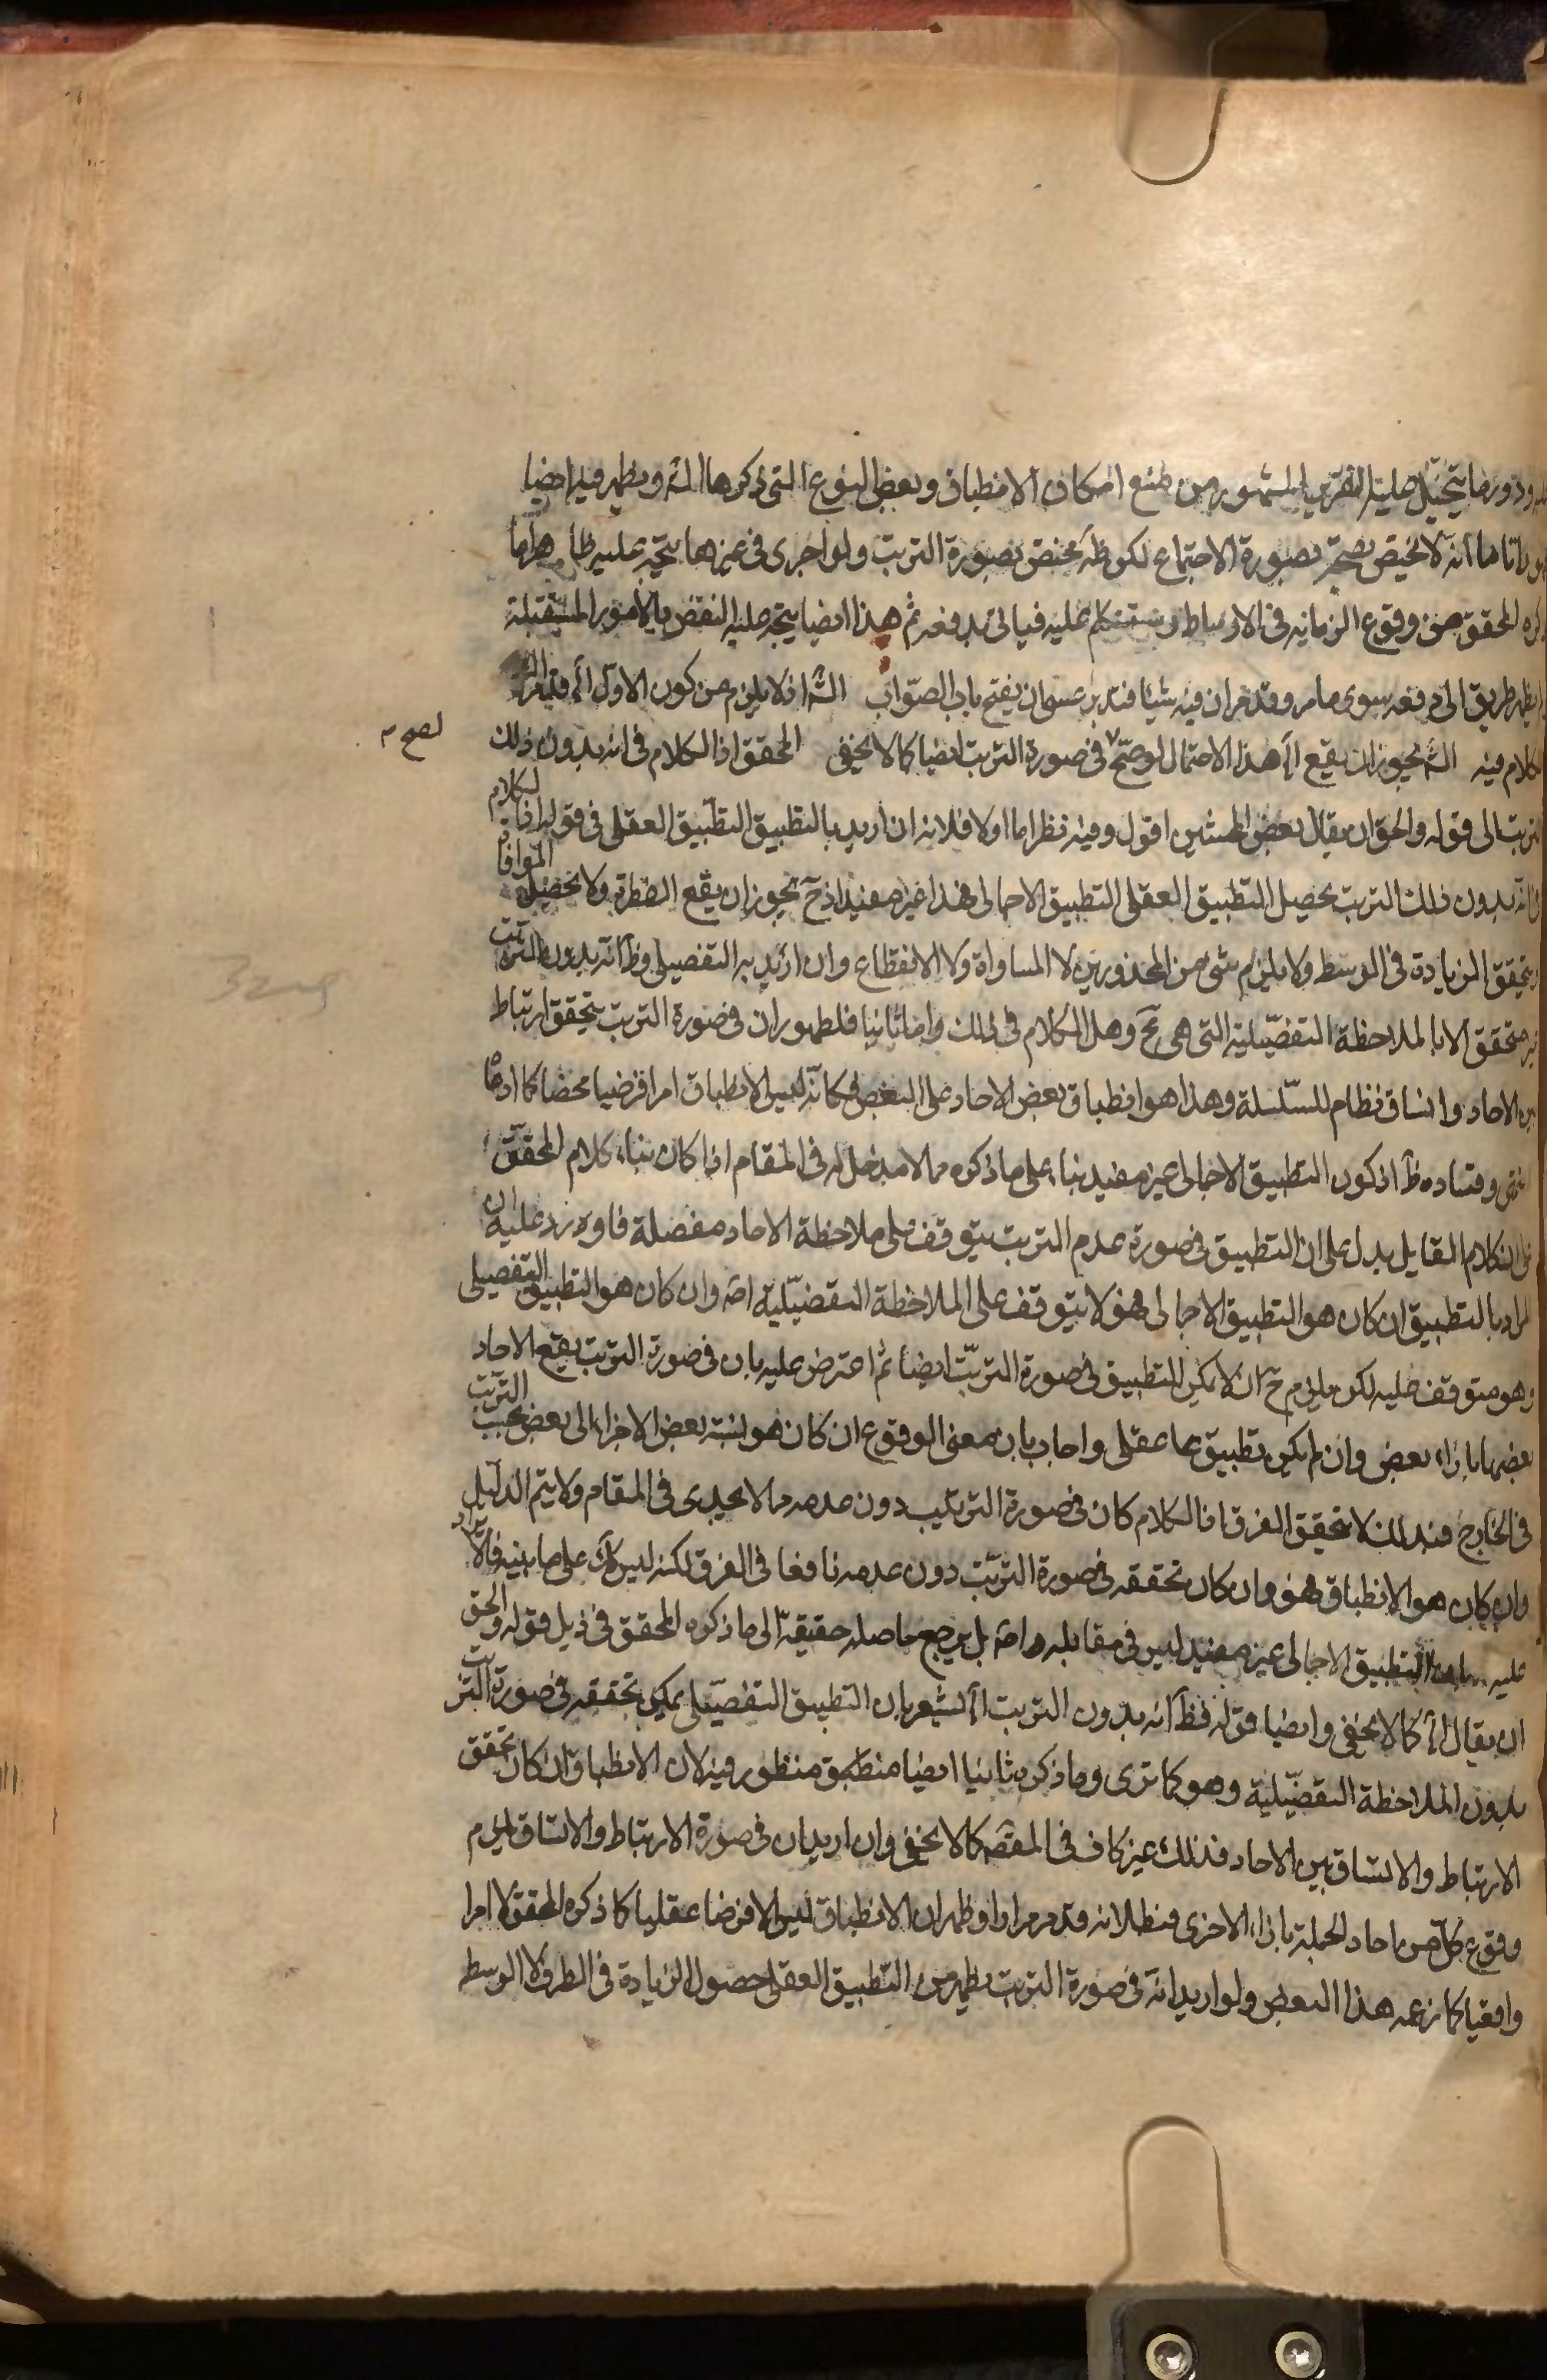 ورود ما يتخيل عليه التقرير المشهور من منع امكان الانطباق وبعض النوع التى ذكرها الش ويظهر فيه ايضا
انه لا يختص بصحة بصورة الاجتماع لكن ظ مختص بصورة الترتب ولو اجرى فى غيرها يتجه عليه ظاهرا ما
ذكره المحقق من وقوع الزمانيه فى الاوساط وسنتكلم عليه فيما لى بدفعه ثم هذا ايضا يتجه عليه النقض بالامور المستقبلة
يظهر طريق الى دفعه سوى ما مر وقد مر ان فيه شيئا فتدبر عسى ان يفتح باب الصواب الش اذ لا يلزم من كون الاول الخ قيل
الكلام فيه الش يجوز ان يقع الخ هذا الاحتمال لو صح فى صورة الترتب ايضا كما لا يخفى المحقق اذ الكلام فى انه بدون ذلك
لصح م
الترتب الى قوله والحق ان يقال بعض المحشين اقول وفيه نظر اما اولا فلانه ان اريد بالتطبيق التطبيق العقلى فى قوله اذ الكلام
فى انه بدون ذلك الترتب يحصل التطبيق العقلى التطبيق الاجمالى فهذا غير مفيد اذ ح يجوز ان يقع ولا يحصل الموافاة
ويتحقق الزيادة فى الوسط ولا يلزم شئ من المحذورين لا المساواة ولا الانقطاع وان اريد به التفصيلى وظ انه بدون الترتب
غير متحقق الا بالملاحظة التفصيلية التى هى مح وهل الكلام فى ذلك واما ثانيا فلظهور ان فى صورة الترتب يتحقق ارتباط
بين الاحاد واتساق نظام للسلسلة وهذا هو انطباق بعض الاحاد على البعض فكانه ليس الانطباق امرا فرضيا محضا كما ادعاه
انتهى وفساده ظ اذ كون التطبيق الاجمالى غير مفيد بناء على ما ذكره مما لا مدخل له فى المقام اذا كان بناء كلام المحقق
على ان الكلام القايل يدل على ان التطبيق فى صورة عدم الترتب يتوقف على ملاحظة الاحاد مفصلة فاورد عليه ان
المراد بالتطبيق ان كان هو التطبيق الاجمالى فهو لا يتوقف على الملاحظة التفصيلية اصه وان كان هو التطبيق التفصيلى
فهو متوقف عليه لكن يلزم ح ان لا يمكن التطبيق فى صورة الترتب ايضا ثم اعترض عليه بان فى صورة الترتب يقع الاحاد
بعضها بازاء بعض وان لم يكن تطبيقهما عقلى واجاب بان معنى الوقوع ان كان هو نسبة بعض الاجزاء الى بعض بحسب الترتب
فى الخارج فبذلك لا يتحقق الفرق اذ الكلام كان فى صورة التركيب دون عدمه مما لا يجدى فى المقام ولا يتم الدليل
وان كان هو الانطباق فهو وان كان تحققه فى صورة الترتب دون عدمه نافعا فى الفرق لكنه ليس كك على ما بينه فالايراد
عليه بان التطبيق الاجمالى غير مفيد ليس فى مقابله اصه بل يرجع حاصله حقيقة الى ما ذكره المحقق فى ذيل قوله والحق
ان يقال الخ كما لا يخفى وايضا قوله فظ انه بدون الترتب الخ لشعر بان التطبيق التفصيلى يمكن تحققه فى صورة الترتب
بدون الملاحظة التفصيلية وهو كما ترى وما ذكره ثانيا ايضا منطبق منظور فيه لان الانطباق ان كان تحقق
الارتباط والاتساق بين الاحاد فذلك غير كاف فى المقصد كما لا يخفى وان اريد ان فى صورة الارتباط والاتساق يلزم
وقوع كل من احاد الجملة بازاء الاخرى فبطلانه قد مر مرارا وظهر ان الانطباق ليس الا فرضا عقليا كما ذكره المحقق لا امرا
واقعيا كما زعمه هذا البعض ولو اريد انه فى صورة الترتب يظهر من التطبيق العقلى حصول الزيادة فى الطرف لا الوسط